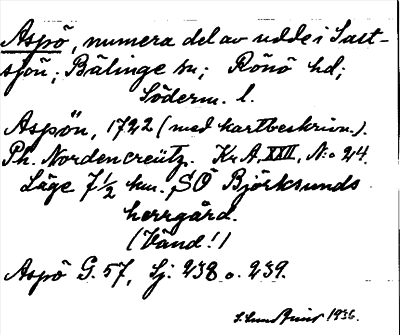 Aspö, numera del av udde i Salt-
sjön; Bälinge sn; Rönö hd;
Söderm. l.
Aspön, 1722 (med kartbeskrivn.).
Ph. Nordencreütz. Kr. A. XXII, N:o 24.
Läge 7 1/2 km. SO Björksunds
herrgård.
(Vänd!)
Aspö G. 57, Sj. 238 o. 239.
1936.